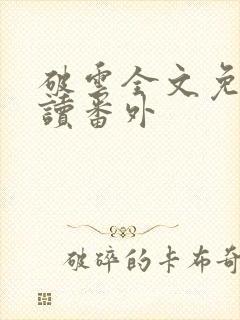 破雲全文免
讀番外
破碎的卡布奇